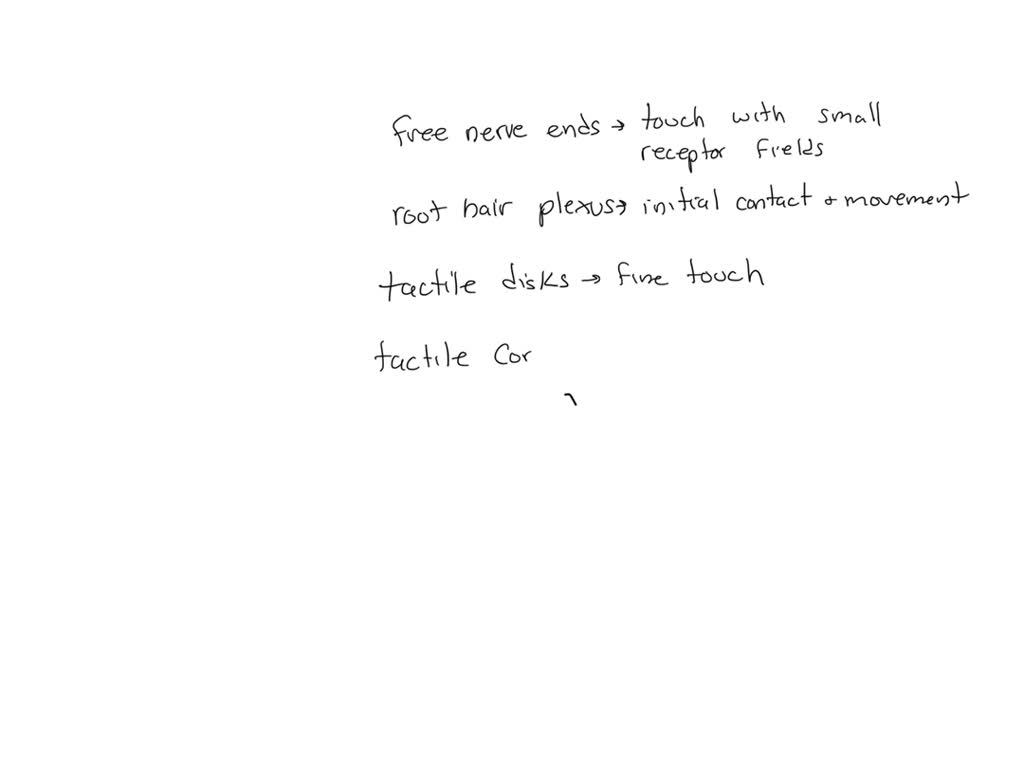 free nerve ends → touch with small
receptor fields
root hair plexus → initial contact + movement
tactile disks → fine touch
tactile Cor